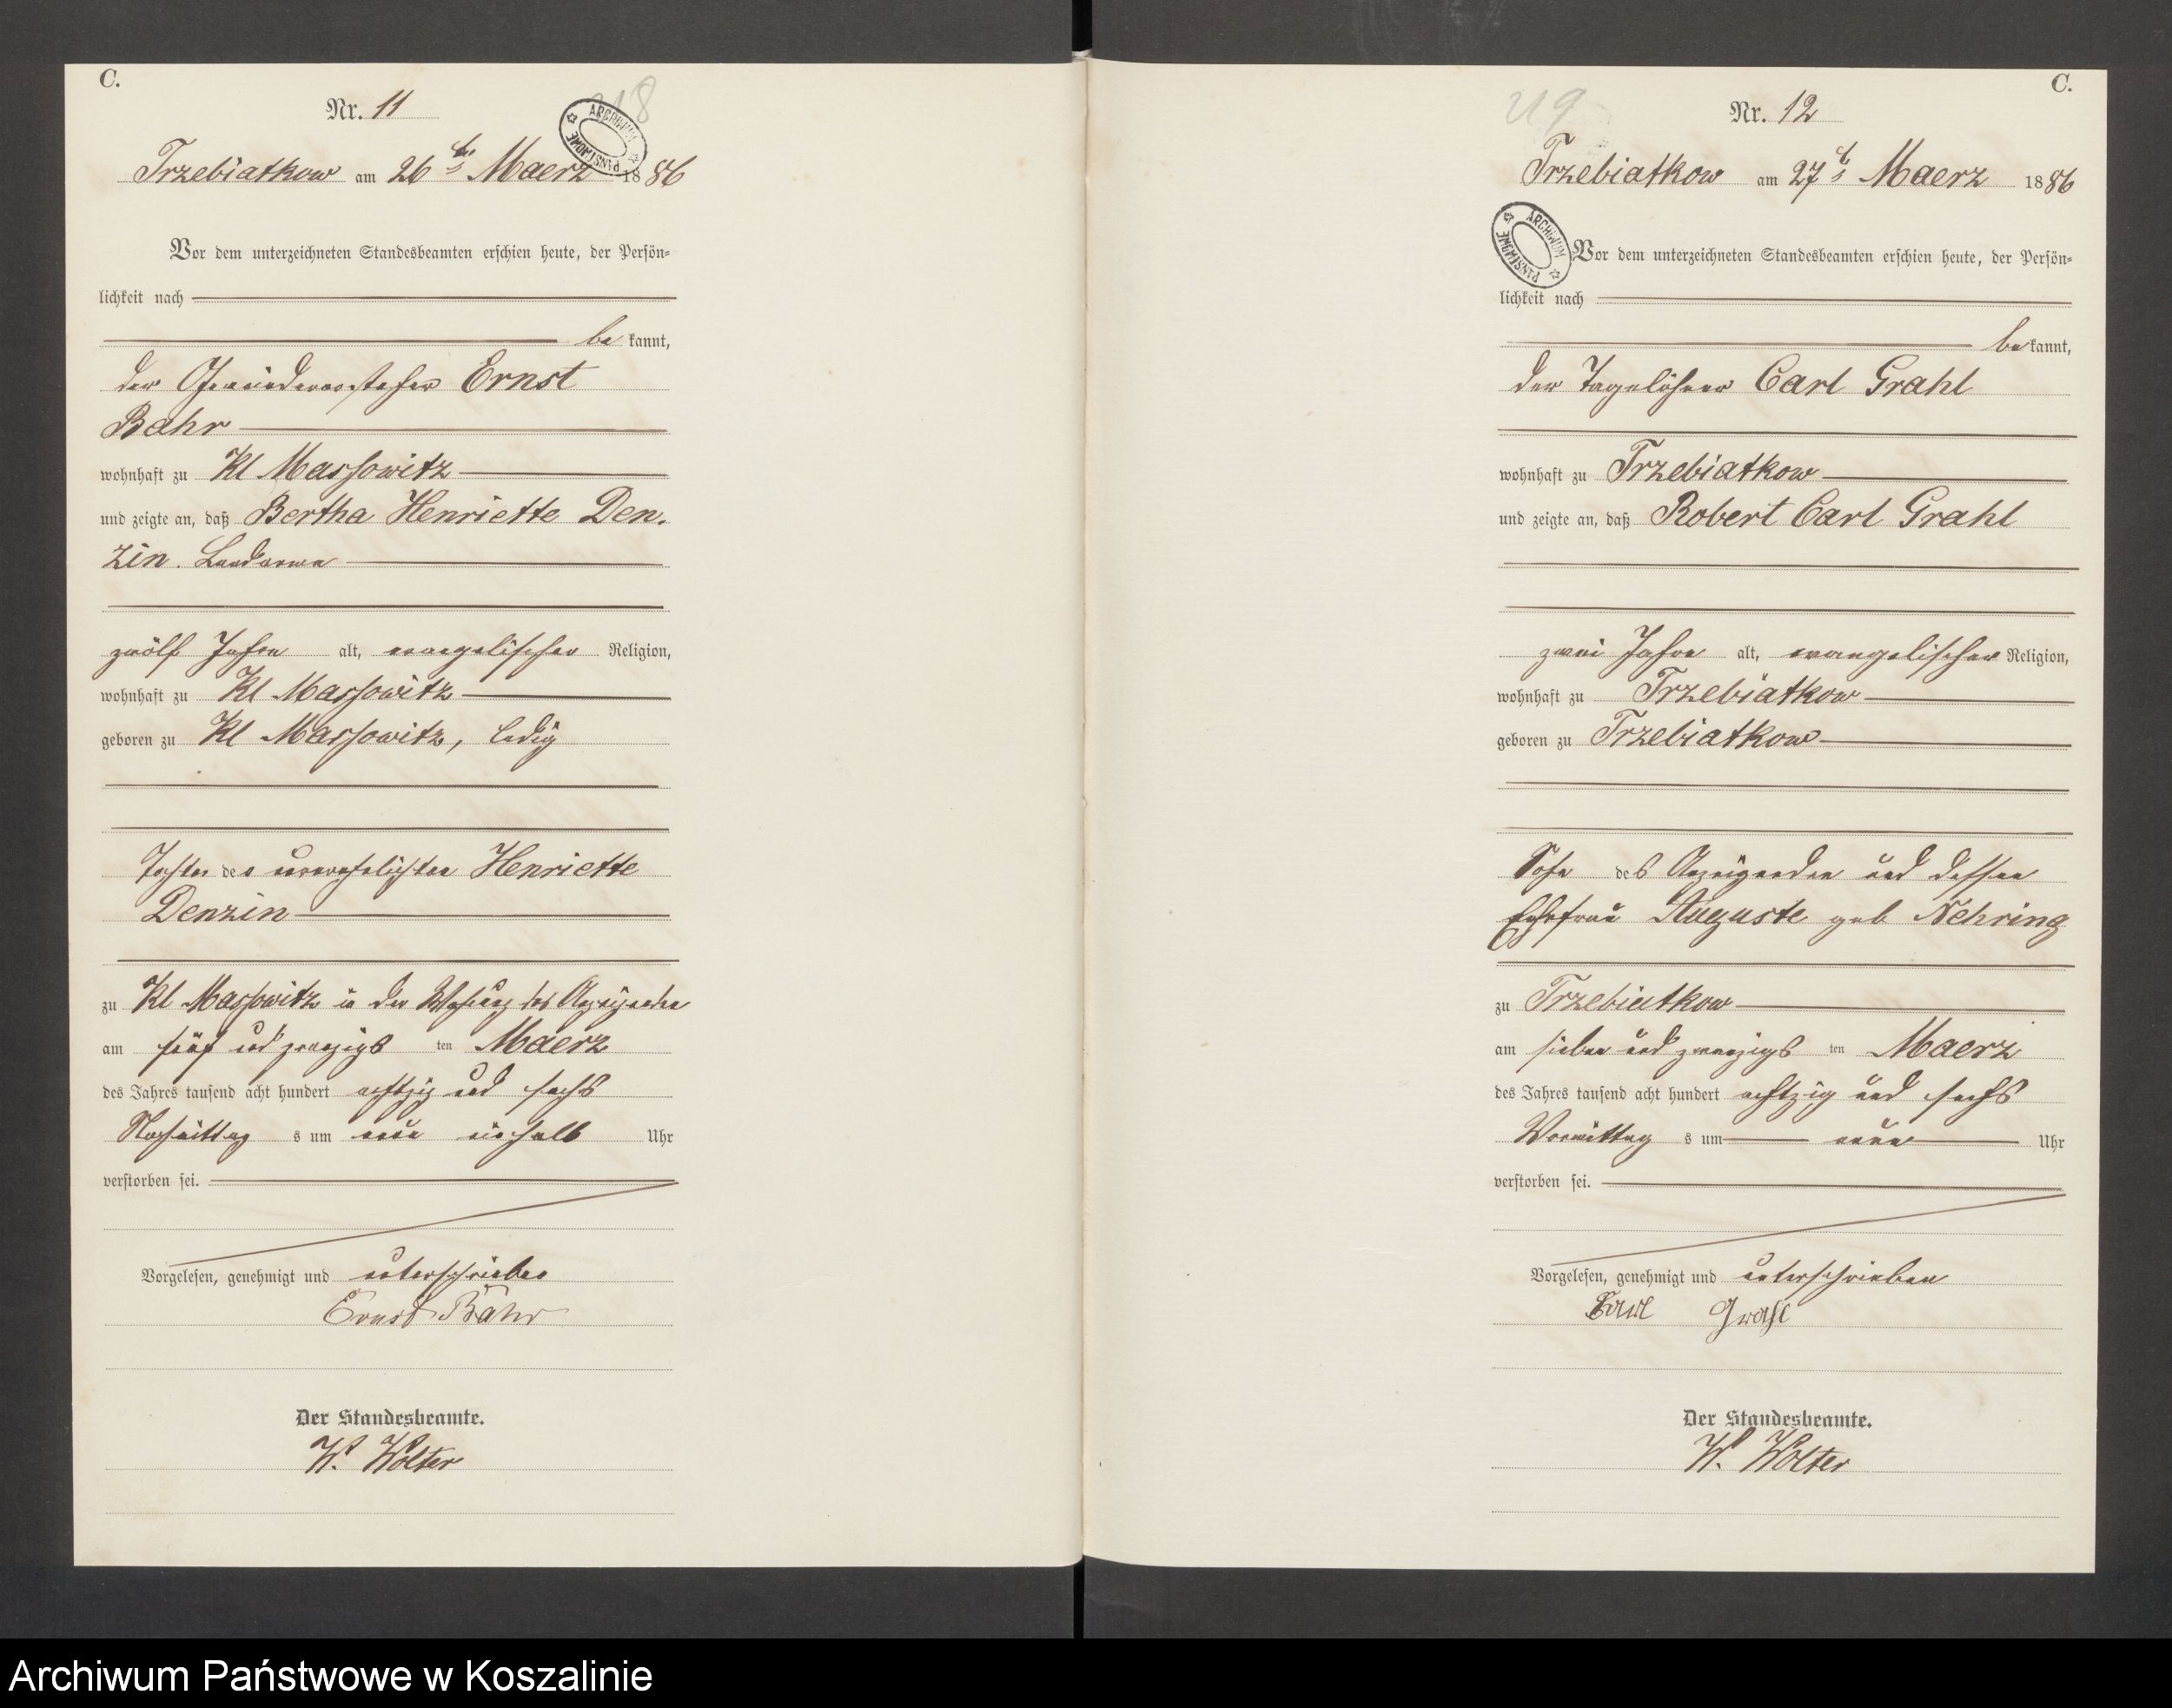 C.
Nr. 11
218
ARCHIWUM PAŃSTWOWE
Trzebiatkow am 26ten Maerz 1886
Vor dem unterzeichneten Standesbeamten erschien heute, der Persön-
lichkeit nach
be kannt,
der Gemeindevorsteher Ernst
Bahr
wohnhaft zu Kl Massowitz
und zeigte an, daß Bertha Henriette Den-
zin. Landarme
zwölf Jahre alt, evangelischer Religion,
wohnhaft zu Kl Massowitz
geboren zu Kl Massowitz, ledig
Tochter der unverehelichten Henriette
Denzin
zu Kl Massowitz in der Wohnung des Anzeigenden
am fünf und zwanzigs ten Maerz
des Jahres tausend acht hundert achtzig und sechs
Nachmittag s um neun einhalb Uhr
verstorben sei.
Vorgelesen, genehmigt und unterschrieben
Ernst Bahr
Der Standesbeamte.
W. Wolter
C.
219
Nr. 12
Trzebiatkow am 27t Maerz 1886
ARCHIWUM PAŃSTWOWE
Vor dem unterzeichneten Standesbeamten erschien heute, der Persön-
lichkeit nach
be kannt,
der Tagelöhner Carl Grahl
wohnhaft zu Trzebiatkow
und zeigte an, daß Robert Carl Grahl
zwei Jahre alt, evangelischer Religion,
wohnhaft zu Trzebiatkow
geboren zu Trzebiatkow
Sohn des Anzeigenden und dessen
Ehefrau Auguste geb Nehring
zu Trzebiatkow
am sieben und zwanzigs ten Maerz
des Jahres tausend acht hundert achtzig und sechs
Vormittag s um neun Uhr
verstorben sei.
Vorgelesen, genehmigt und unterschrieben
Carl Grahl
Der Standesbeamte.
W. Wolter
Archiwum Państwowe w Koszalinie